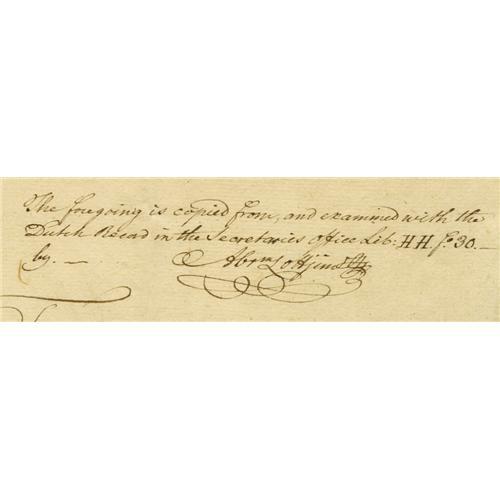 The foregoing is copied from, and examined with the
Dutch Record in the Secretaries office Lib: HH fo. 30. —
by. —
Abrm Lott Junr